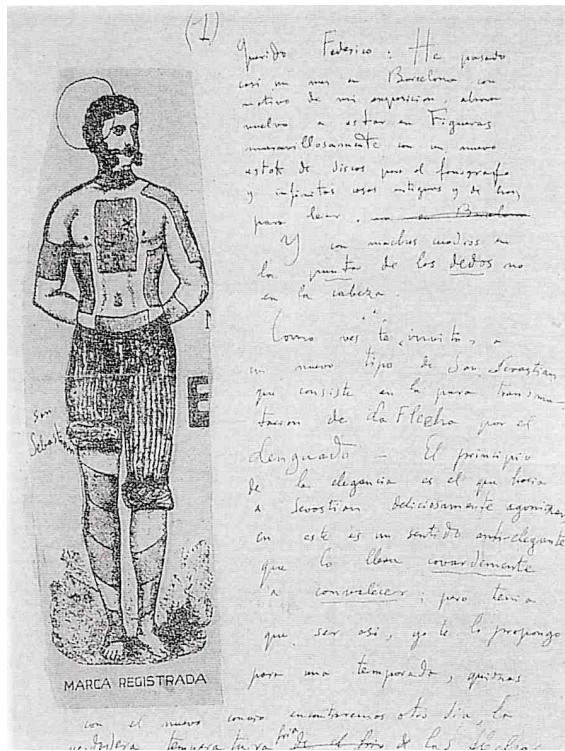 (1)
Querido Federico: He pasado
casi un mes en Barcelona con
motivo de mi exposicion, ahora
vuelvo a estar en Figueras
maravillosamente con un nuevo
estok de discos para el fonografo
y infinitas cosas antiguas y de hoy
para leer.
Y con muchos cuadros en
la punta de los dedos no
en la cabeza.
Como ves te, invito, a
un nuevo tipo de San Sevastian,
que consiste en la pura transmu-
tacion de la Flecha por el
Lenguado – El principio
de la elegancia es el que hacia
a Sevastian deliciosamente agonizar,
en este es un sentido anti-elegante
que lo lleva covardemente
a convalecer; pero tenia
que ser asi, yo te lo propongo
para una temporada, quizas
con el nuevo encontraremos otro dia, la
verdadera temperatura fria de las flechas
san
Sebastian
E
MARCA REGISTRADA